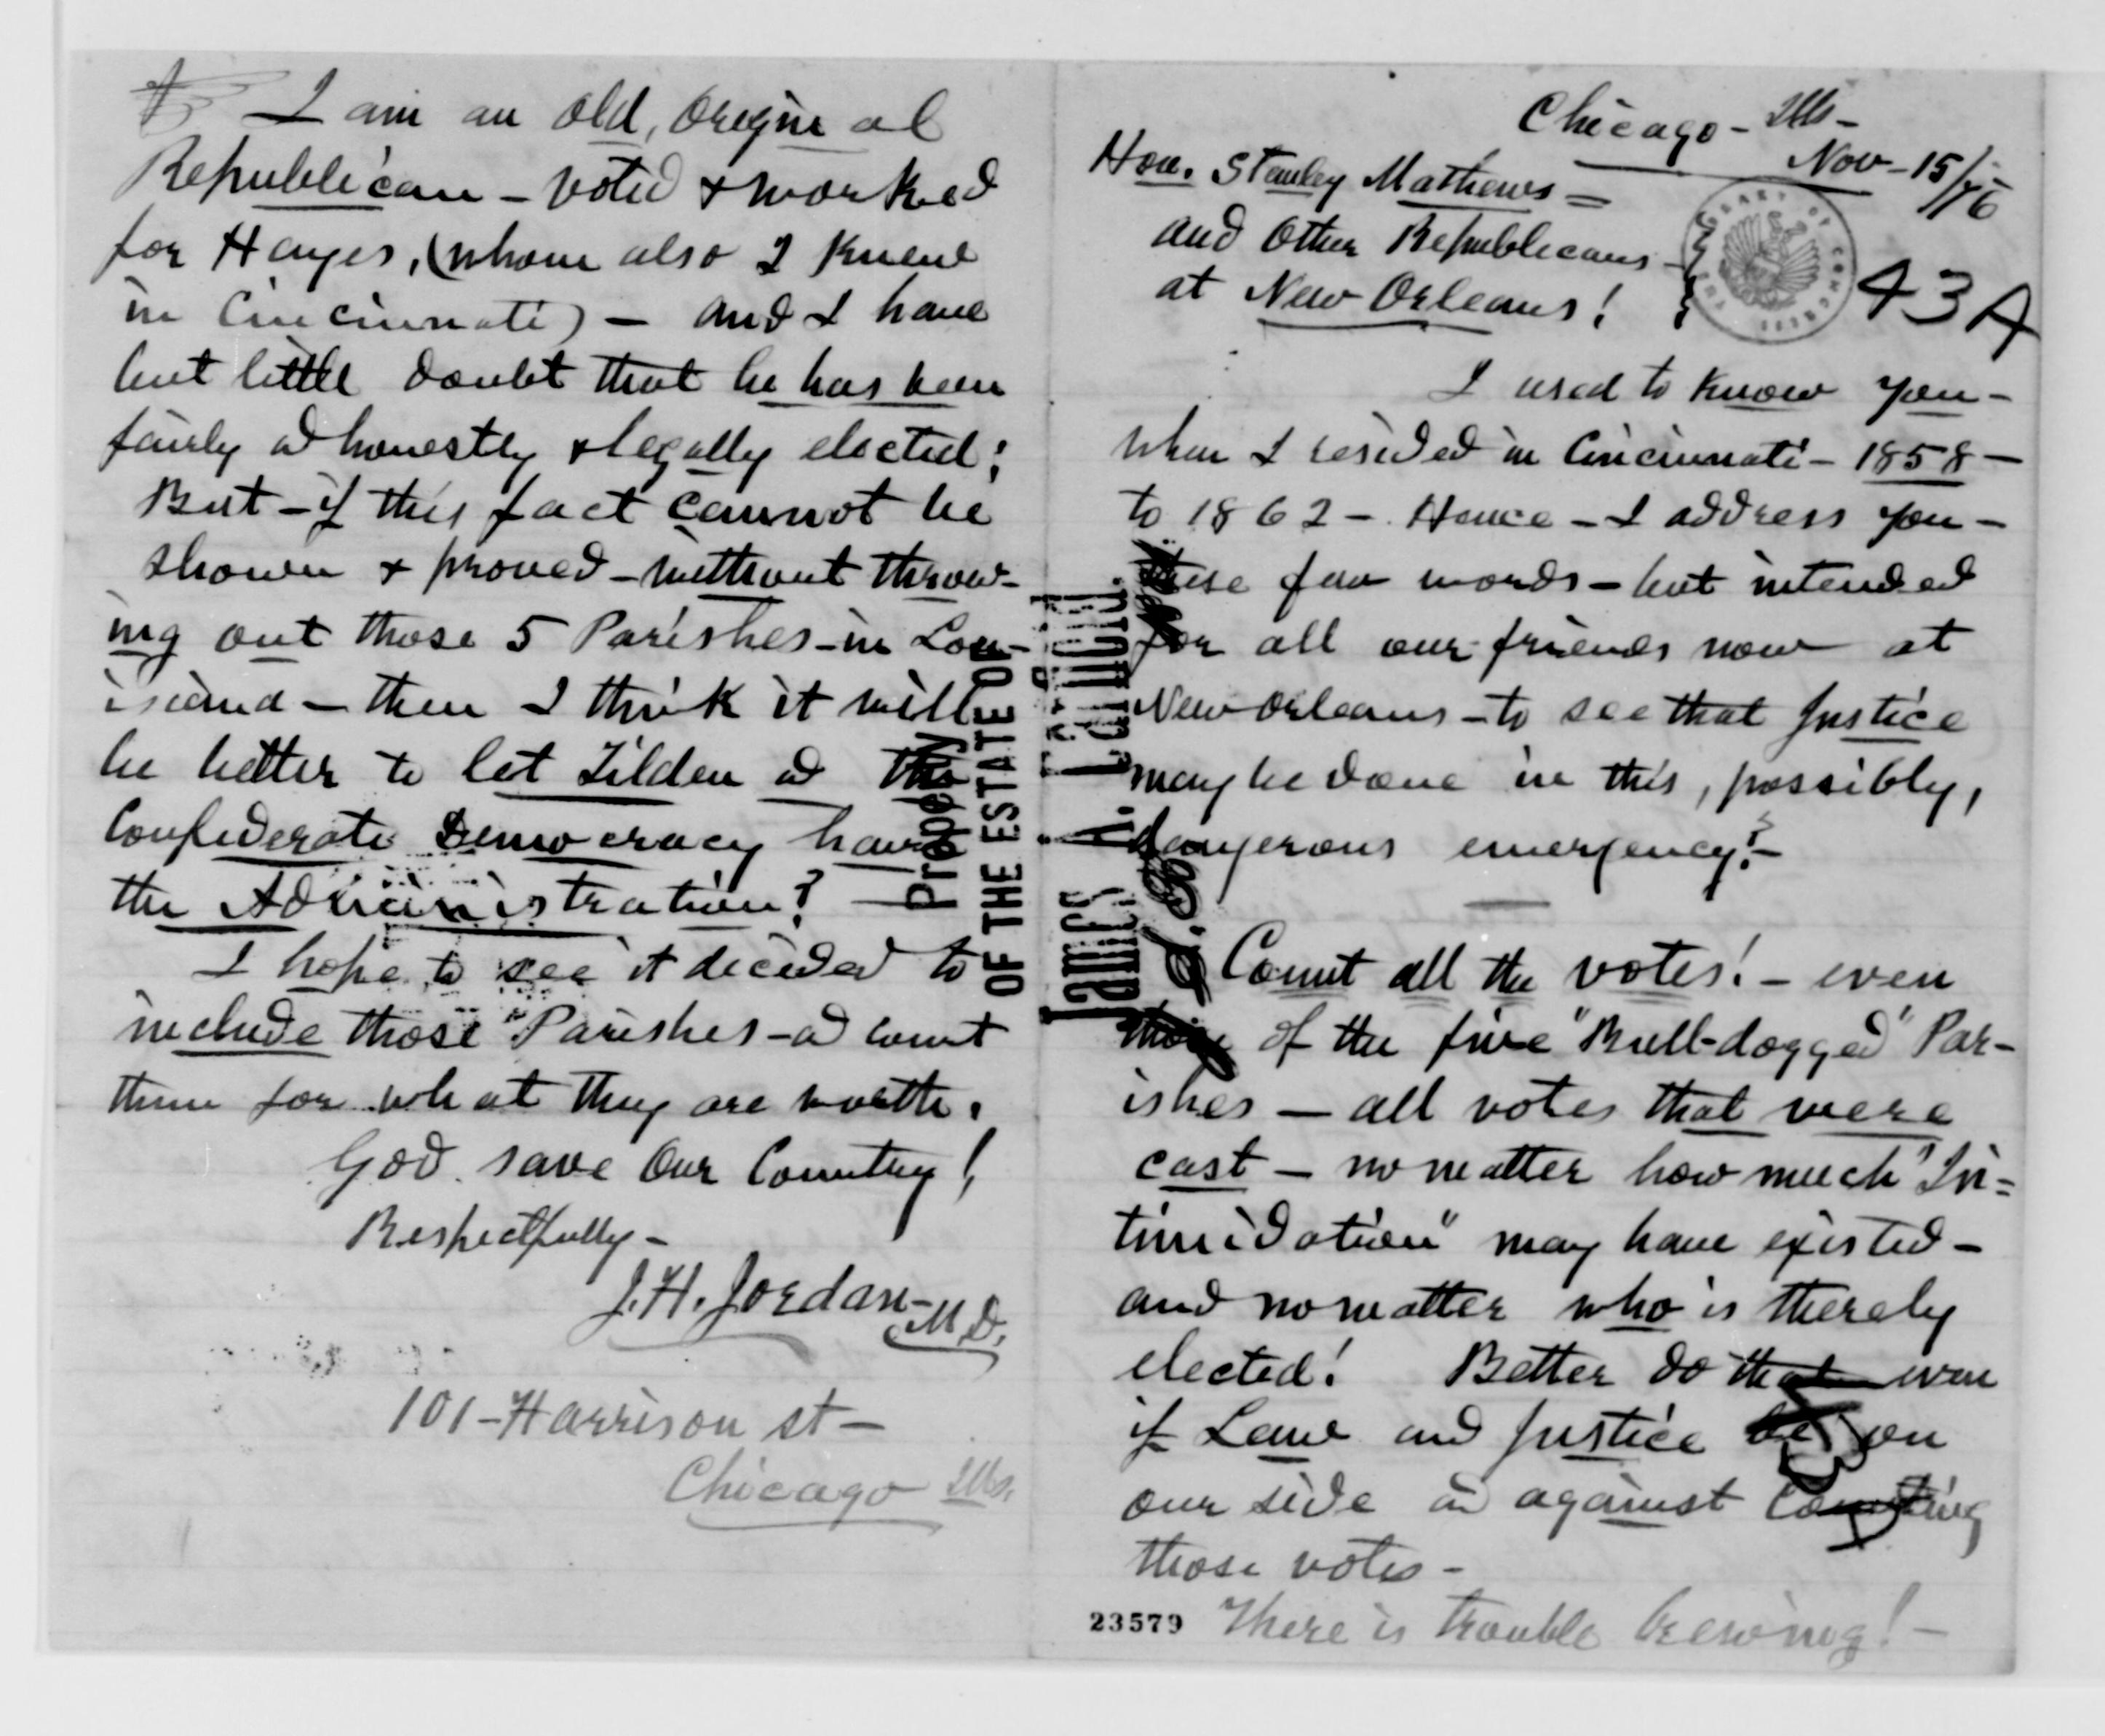 Chicago - Ills -
Nov - 15/76
Hon. Stanley Mathews =
and Other Republicans -
at New Orleans!
43A
I used to know you -
when I resided in Cincinnati - 1858 -
to 1862 - Hence - I address you -
these few words - but intended
for all our friends now at
New Orleans - to see that Justice
may be done in this, possibly,
dangerous emergency! -
Count all the votes! - even
those of the five "Bull-dogged" Par-
ishes - all votes that were
cast - no matter how much "In=
timidation" may have existed -
and no matter who is thereby
elected! Better do that even
if Law and Justice be on
our side in against counting
those votes -
There is trouble brewing! -
23579
I am an old, Origin al
Republican - voted & worked
for Hayes, (whom also I knew
in Cincinnati) - and I have
but little doubt that he has been
fairly & honestly & legally elected;
But - if this fact cannot be
shown & proved - without throw-
ing out those 5 Parishes - in Lou-
isiana - then I think it will
be better to let Tilden & the
Confederate Democracy have
the Administration! -
I hope to see it decided to
include those "Parishes - & count
them for what they are worth.
God save Our Country!
Respectfully -
J. H. Jordan - M.D.
101 - Harrison st -
Chicago Ills.
Property
OF THE ESTATE OF
James A. Garfield.